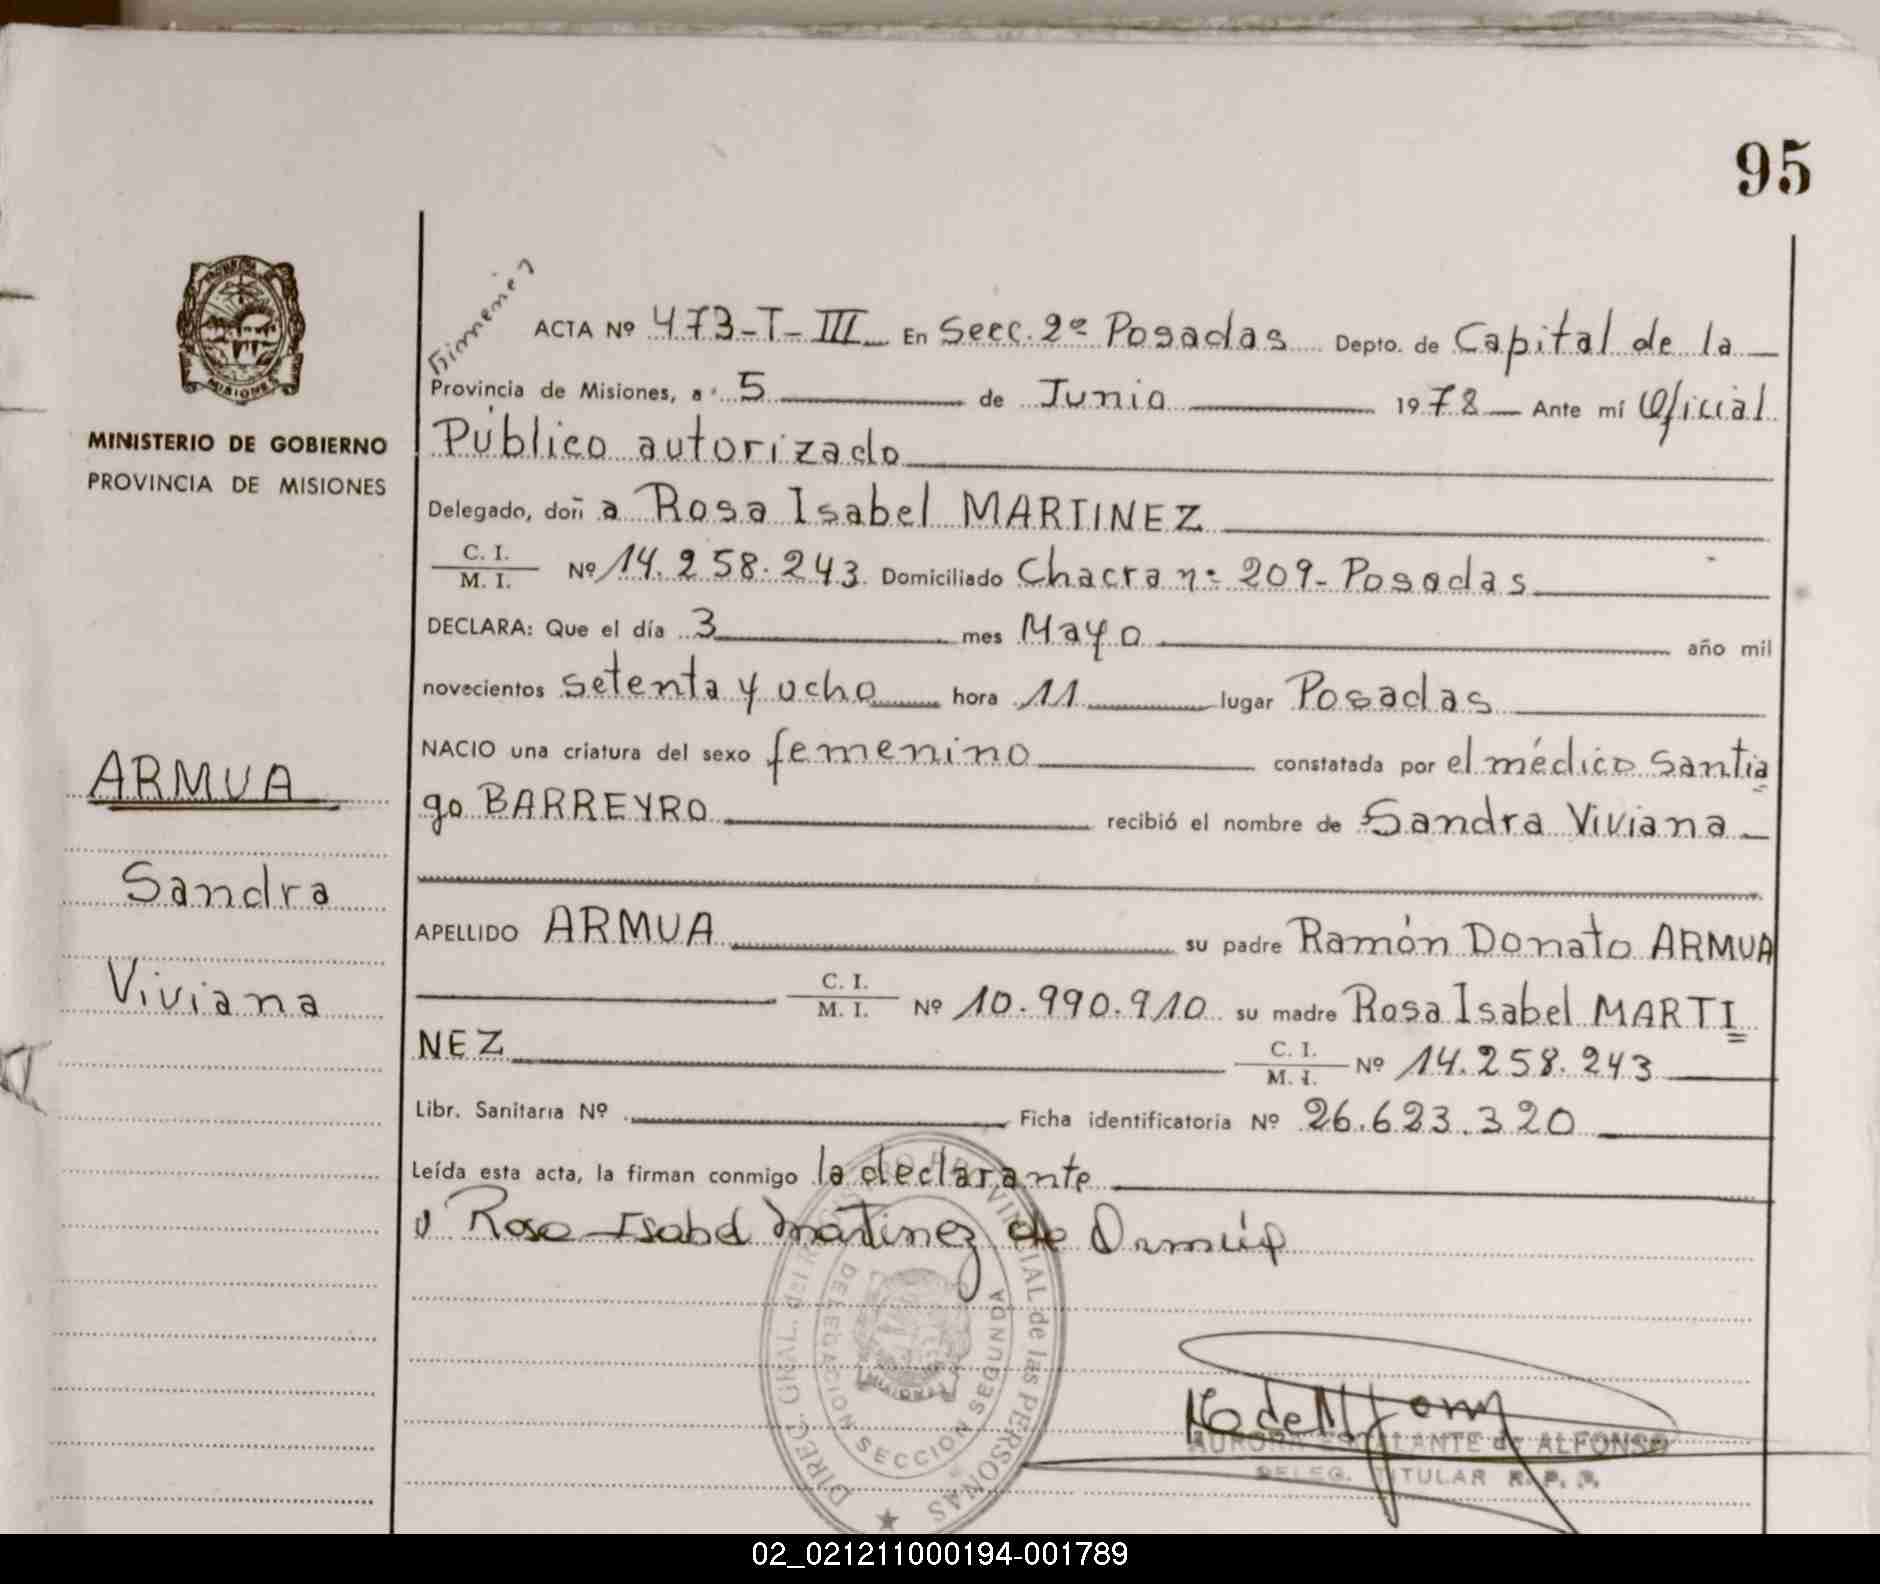 95
PROVINCIA DE
MISIONES
MINISTERIO DE GOBIERNO
PROVINCIA DE MISIONES
ARMUA
Sandra
Viviana
ACTA Nº 473-T-III En Secc. 2º Posadas Depto. de Capital de la
Provincia de Misiones, a 5 de Junio 1978 Ante mí Oficial
Público autorizado
Delegado, doña Rosa Isabel MARTINEZ
C. I.
M. I. Nº 14.258.243 Domiciliado Chacra nº 209- Posadas
DECLARA: Que el día 3 mes Mayo año mil
novecientos setenta y ocho hora 11 lugar Posadas
NACIO una criatura del sexo femenino constatada por el médico Santia
go BARREYRO recibió el nombre de Sandra Viviana
APELLIDO ARMUA su padre Ramón Donato ARMUA
C. I.
M. I. Nº 10.990.910 su madre Rosa Isabel MARTI
NEZ C. I.
M. I. Nº 14.258.243
Libr. Sanitaria Nº Ficha identificatoria Nº 26.623.320
Leída esta acta, la firman conmigo la declarante
Rosa Isabel Martinez de Armúa
DIREC. GRAL. del REGISTRO PROVINCIAL de las PERSONAS
DELEGACION SECCION SEGUNDA
MISIONES
AURORA ESCALANTE de ALFONSO
DELEG. TITULAR R. P. P.
02_021211000194-001789